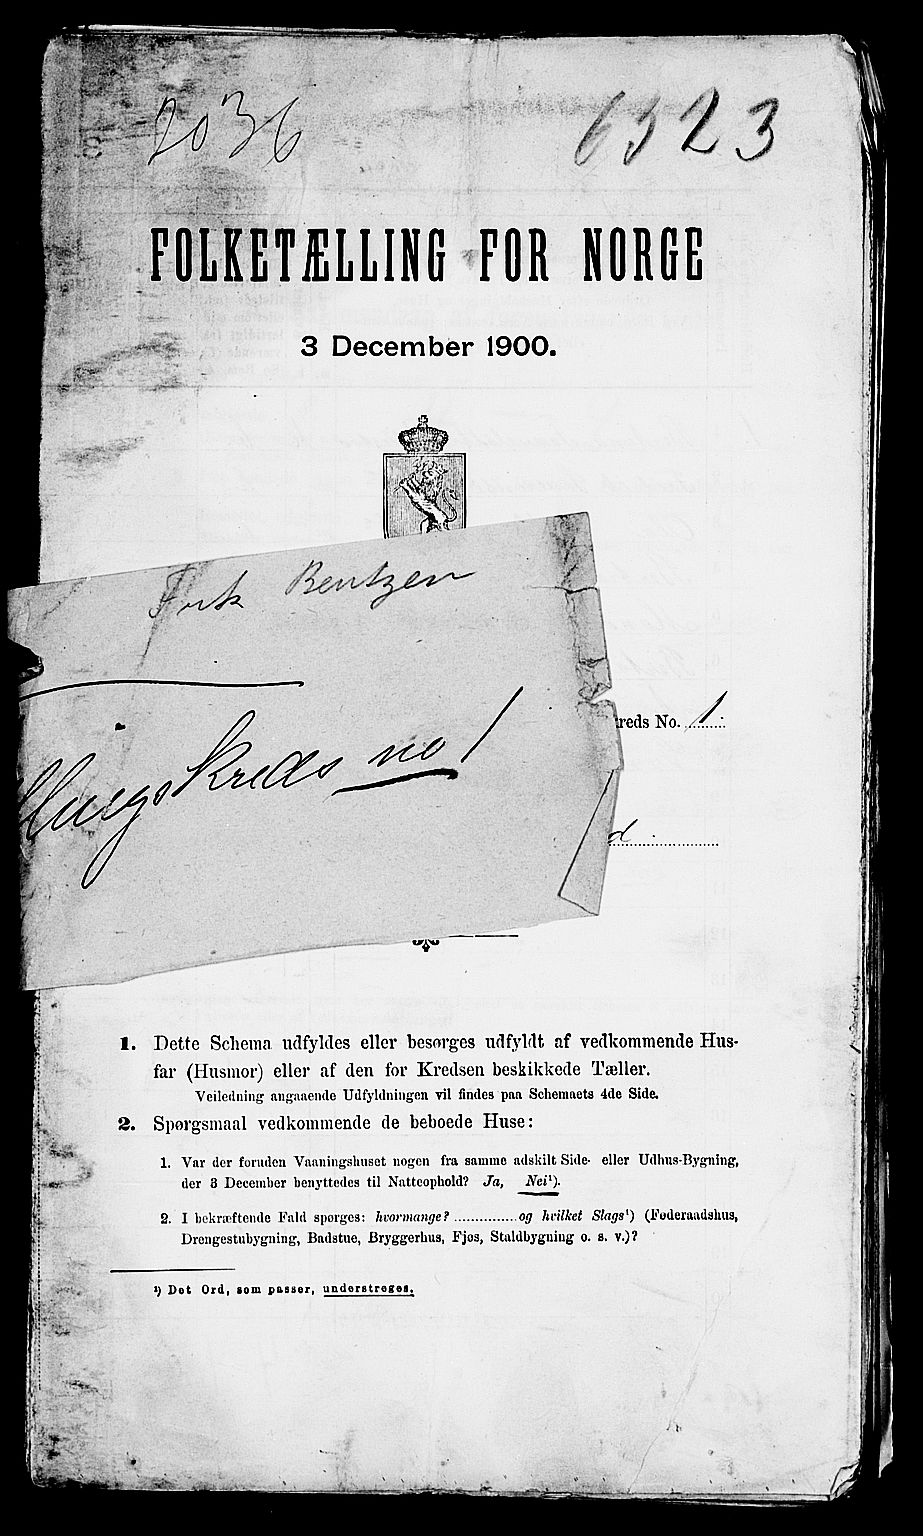 2036 6323
FOLKETÆLLING FOR NORGE
3 December 1900.
Bentzen
reds No. 1
llingskreds no 1
d
1. Dette Schema udfyldes eller besørges udfyldt af vedkommende Hus-
far (Husmor) eller af den for Kredsen beskikkede Tæller.
Veiledning angaaende Udfyldningen vil findes paa Schemaets 4de Side.
2. Spørgsmaal vedkommende de beboede Huse:
1. Var der foruden Vaaningshuset nogen fra samme adskilt Side- eller Udhus-Bygning,
der 3 December benyttedes til Natteophold? Ja, Nei¹).
2. I bekræftende Fald spørges: hvormange? ............... og hvilket Slags¹) (Føderaadshus,
Drengestubygning, Badstue, Bryggerhus, Fjøs, Staldbygning o. s. v.)?
¹) Det Ord, som passer, understreges.